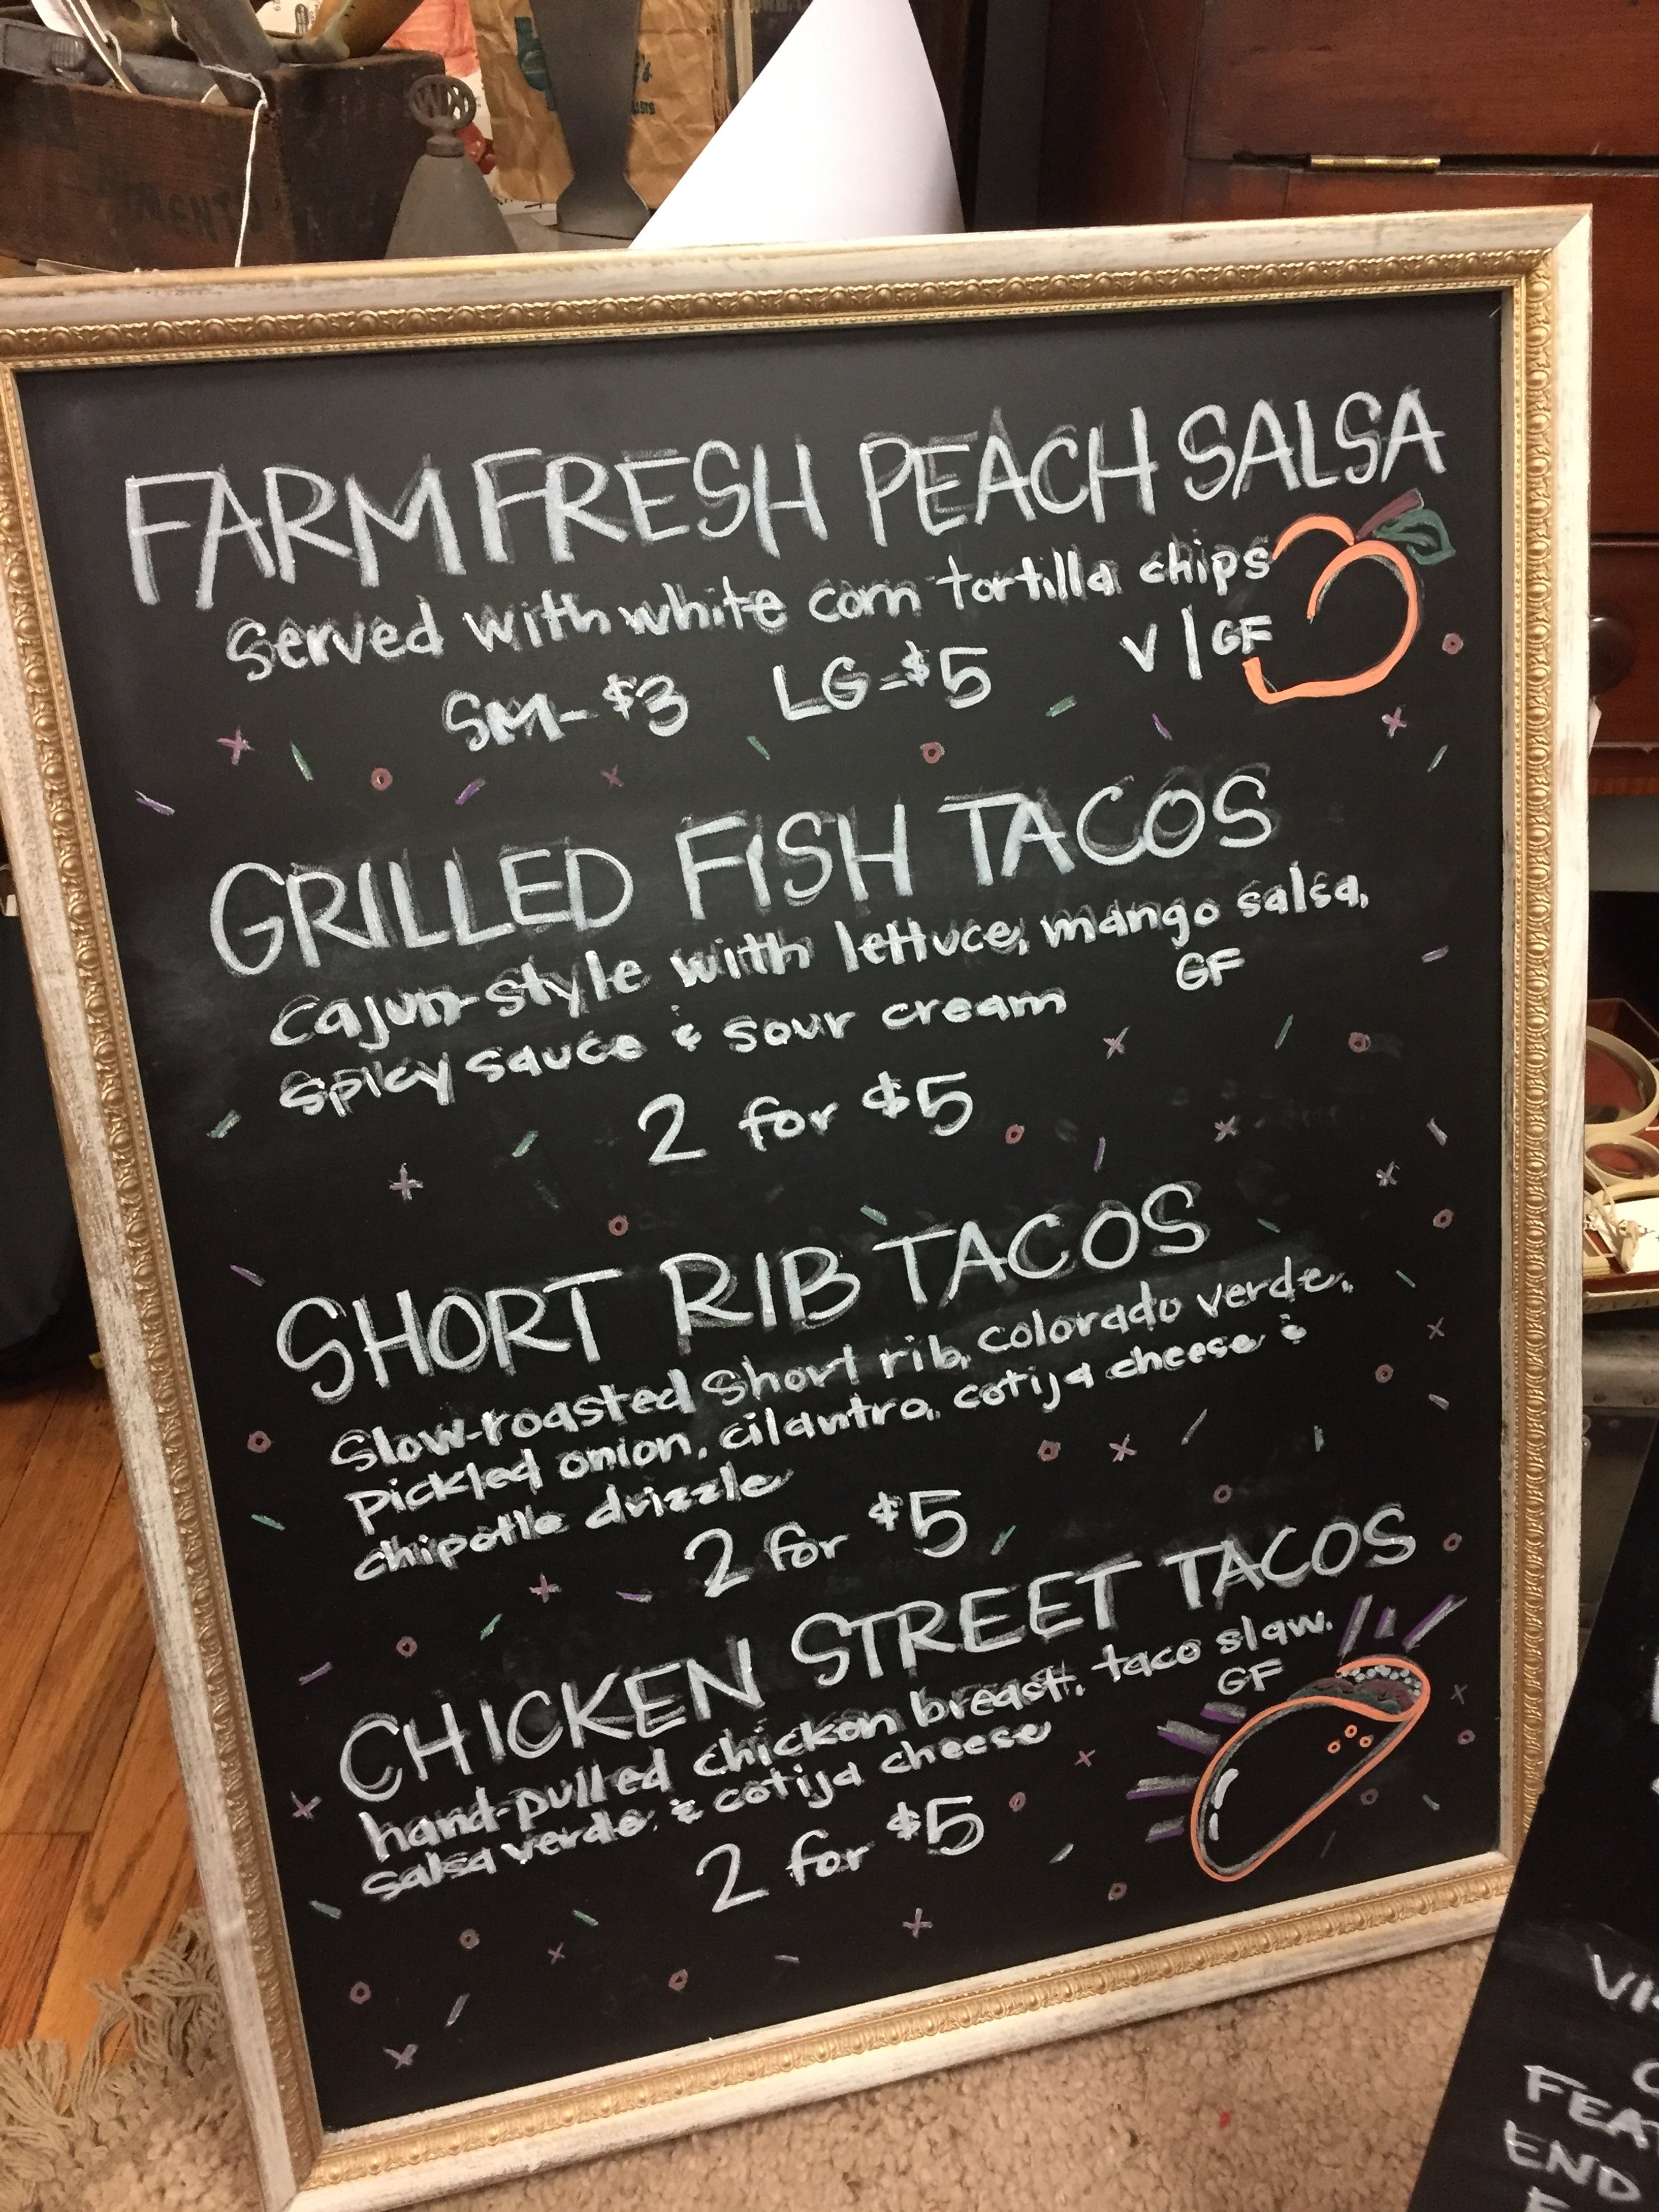 FARM FRESH PEACH SALSA
served with white corn tortilla chips
SM-$3 LG-$5 V | GF
GRILLED FISH TACOS
cajun-style with lettuce, mango salsa,
spicy sauce & sour cream GF
2 for $5
SHORT RIB TACOS
slow-roasted short rib, colorado verde,
pickled onion, cilantro, cotija cheese &
chipotle drizzle
2 for $5
CHICKEN STREET TACOS
hand-pulled chicken breast, taco slaw,
salsa verde, & cotija cheese GF
2 for $5
END